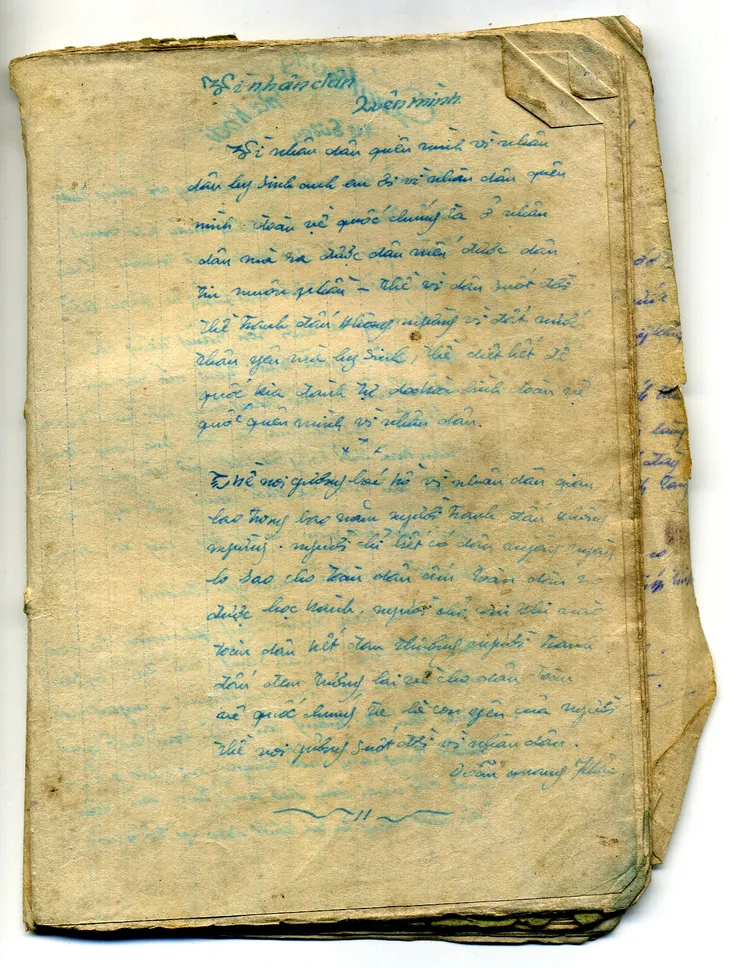 Vì nhân dân
Quên mình
Vì nhân dân quên mình vì nhân
dân hy sinh anh em ơi vì nhân dân quên
mình đoàn vệ quốc chúng ta ở nhân
dân mà ra được dân mến được dân
tin muôn phần – thề vì dân suốt đời
thề tranh đấu không ngừng vì đất nước
thân yên mà hy sinh, thề diệt hết đế
quốc kia dành tự do hòa bình đoàn vệ
quốc quên mình vì nhân dân.
x x x
Thề noi gương bác hồ vì nhân dân gian
lao trong bao năm người tranh đấu không
ngừng. người chỉ biết có dân ngày ngày
lo sao cho toàn dân ấm toàn dân no
được học hành. người chỉ vui khi nào
toàn dân kết đoàn thường người tranh
đấu đem tương lai về cho dân đoàn
vệ quốc chung ta là con yên của người
thề noi gương suốt đời vì nhân dân.
Doãn quang Khải